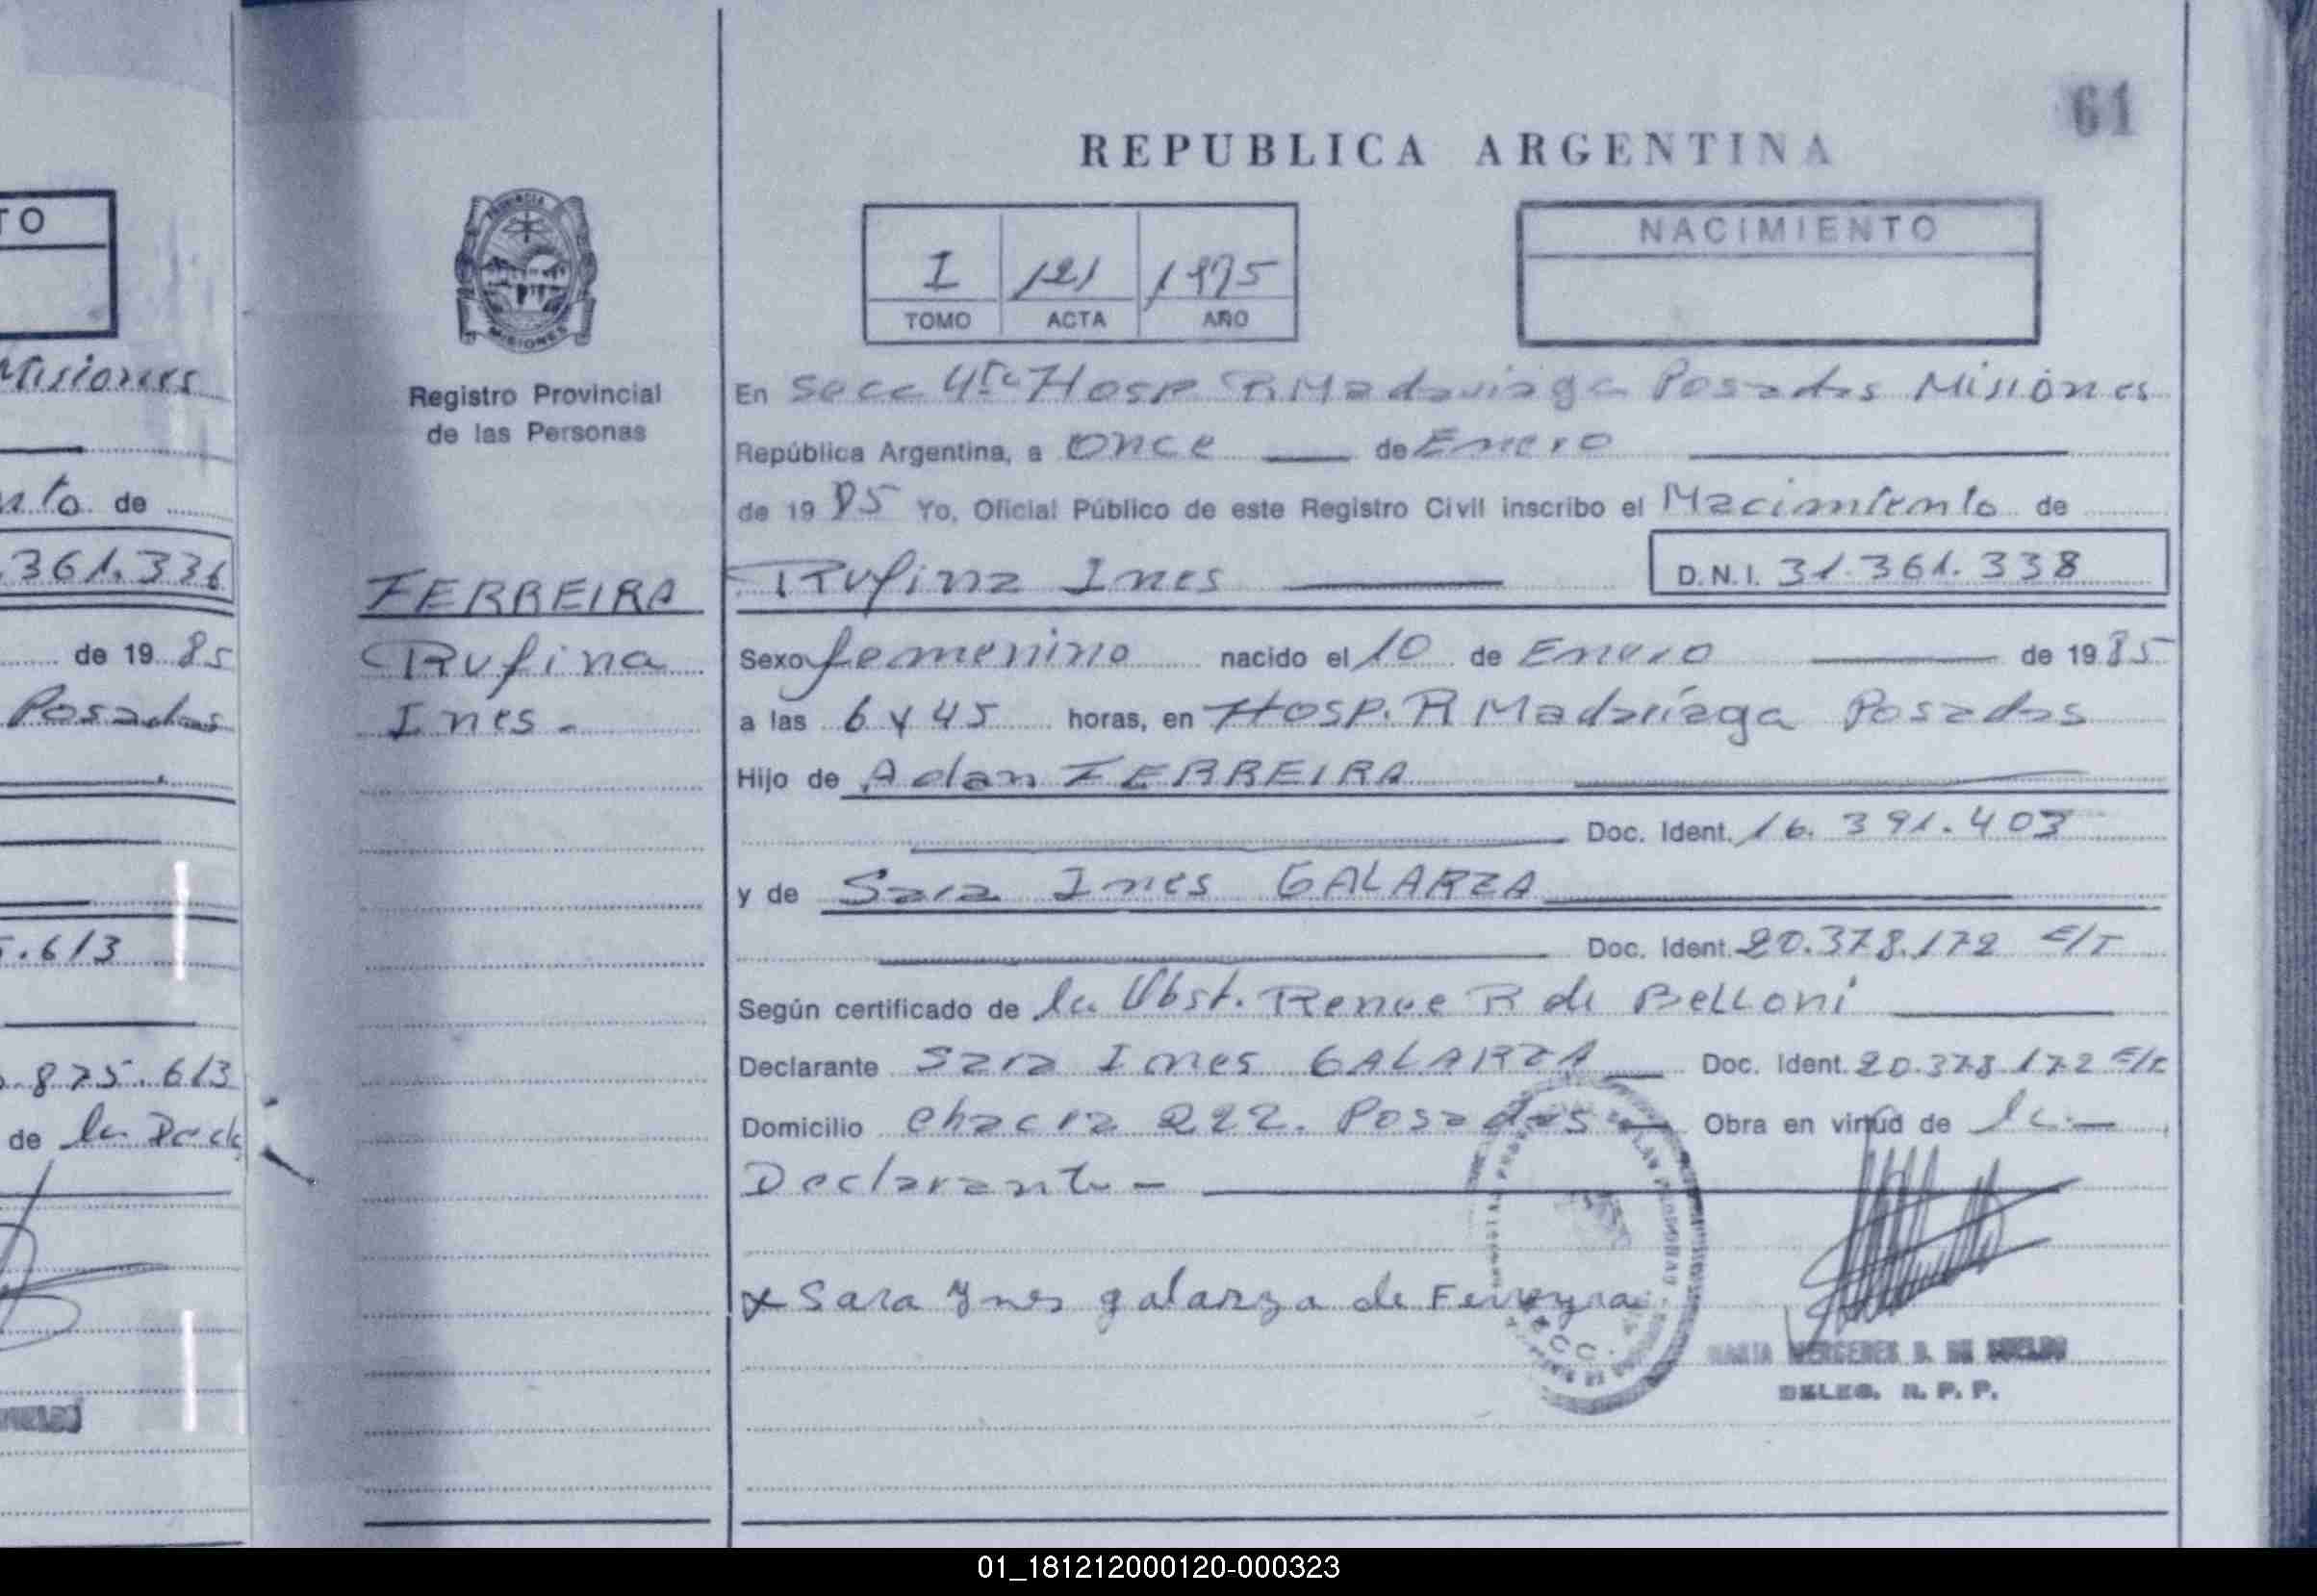 61
REPUBLICA ARGENTINA
TO
PROVINCIA
MISIONES
I 121 1985
TOMO ACTA AÑO
NACIMIENTO
Misiones
Registro Provincial
de las Personas
En Secc 4ta Hosp. R Madariaga Posadas Misiones
República Argentina, a once de Enero
nto de
de 1985 Yo, Oficial Público de este Registro Civil inscribo el Nacimiento de
.361.336
FERREIRA
Rufina Ines D.N.I. 31.361.338
de 1985
Rufina
Sexo femenino nacido el 10 de Enero de 1985
Posadas
Ines.-
a las 6 y 45 horas, en Hosp. R Madariaga Posadas
Hijo de Adan FERREIRA
Doc. Ident. 16.391.403
y de Sara Ines GALARZA
.613
Doc. Ident. 20.378.172 E/T
Según certificado de la Obst. Renee R de Belloni
.875.613
Declarante Sara Ines GALARZA Doc. Ident. 20.378.172 E/T
de la
Domicilio Chacra 222. Posadas Obra en virtud de la
Declarante -
x Sara Ynes galarza de Ferreyra
SECC.
MARIA MERCEDES DE
DELEG. R. P. P.
01_181212000120-000323